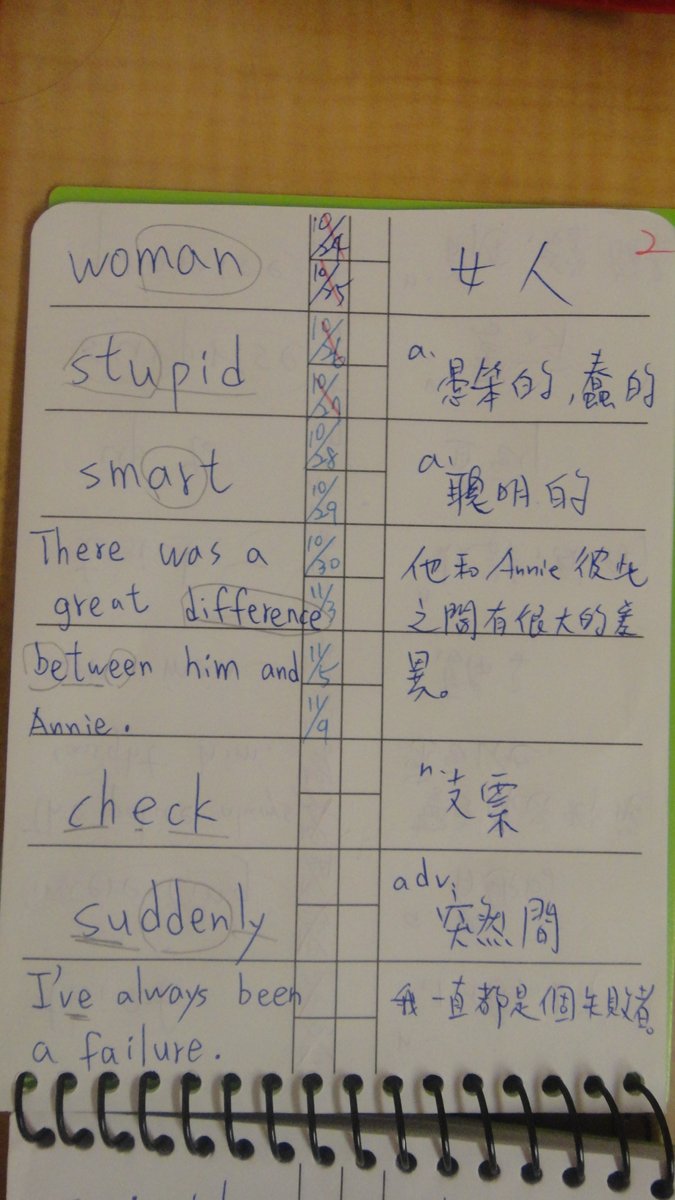 woman
10/24
10/25
女人
2
stupid
10/26
10/27
a. 愚笨的,蠢的
smart
10/28
10/29
a. 聰明的
There was a
great difference
between him and
Annie.
10/30
11/3
11/5
11/9
他和Annie彼此
之間有很大的差
異。
check
n. 支票
suddenly
adv. 突然間
I've always been
a failure.
我一直都是個失敗者。